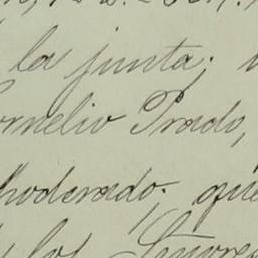 la junta;
ornelio Prado,
poderado; que
los Señores